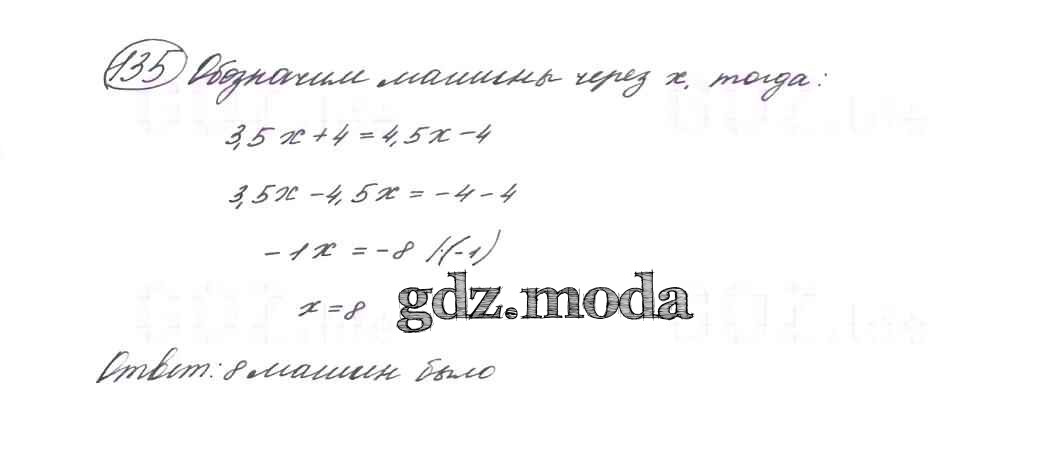 135 Обозначим машины через x, тогда:
3,5x + 4 = 4,5x - 4
3,5x - 4,5x = -4 - 4
-1x = -8 |:(-1)
x = 8
gdz.moda
Ответ: 8 машин было